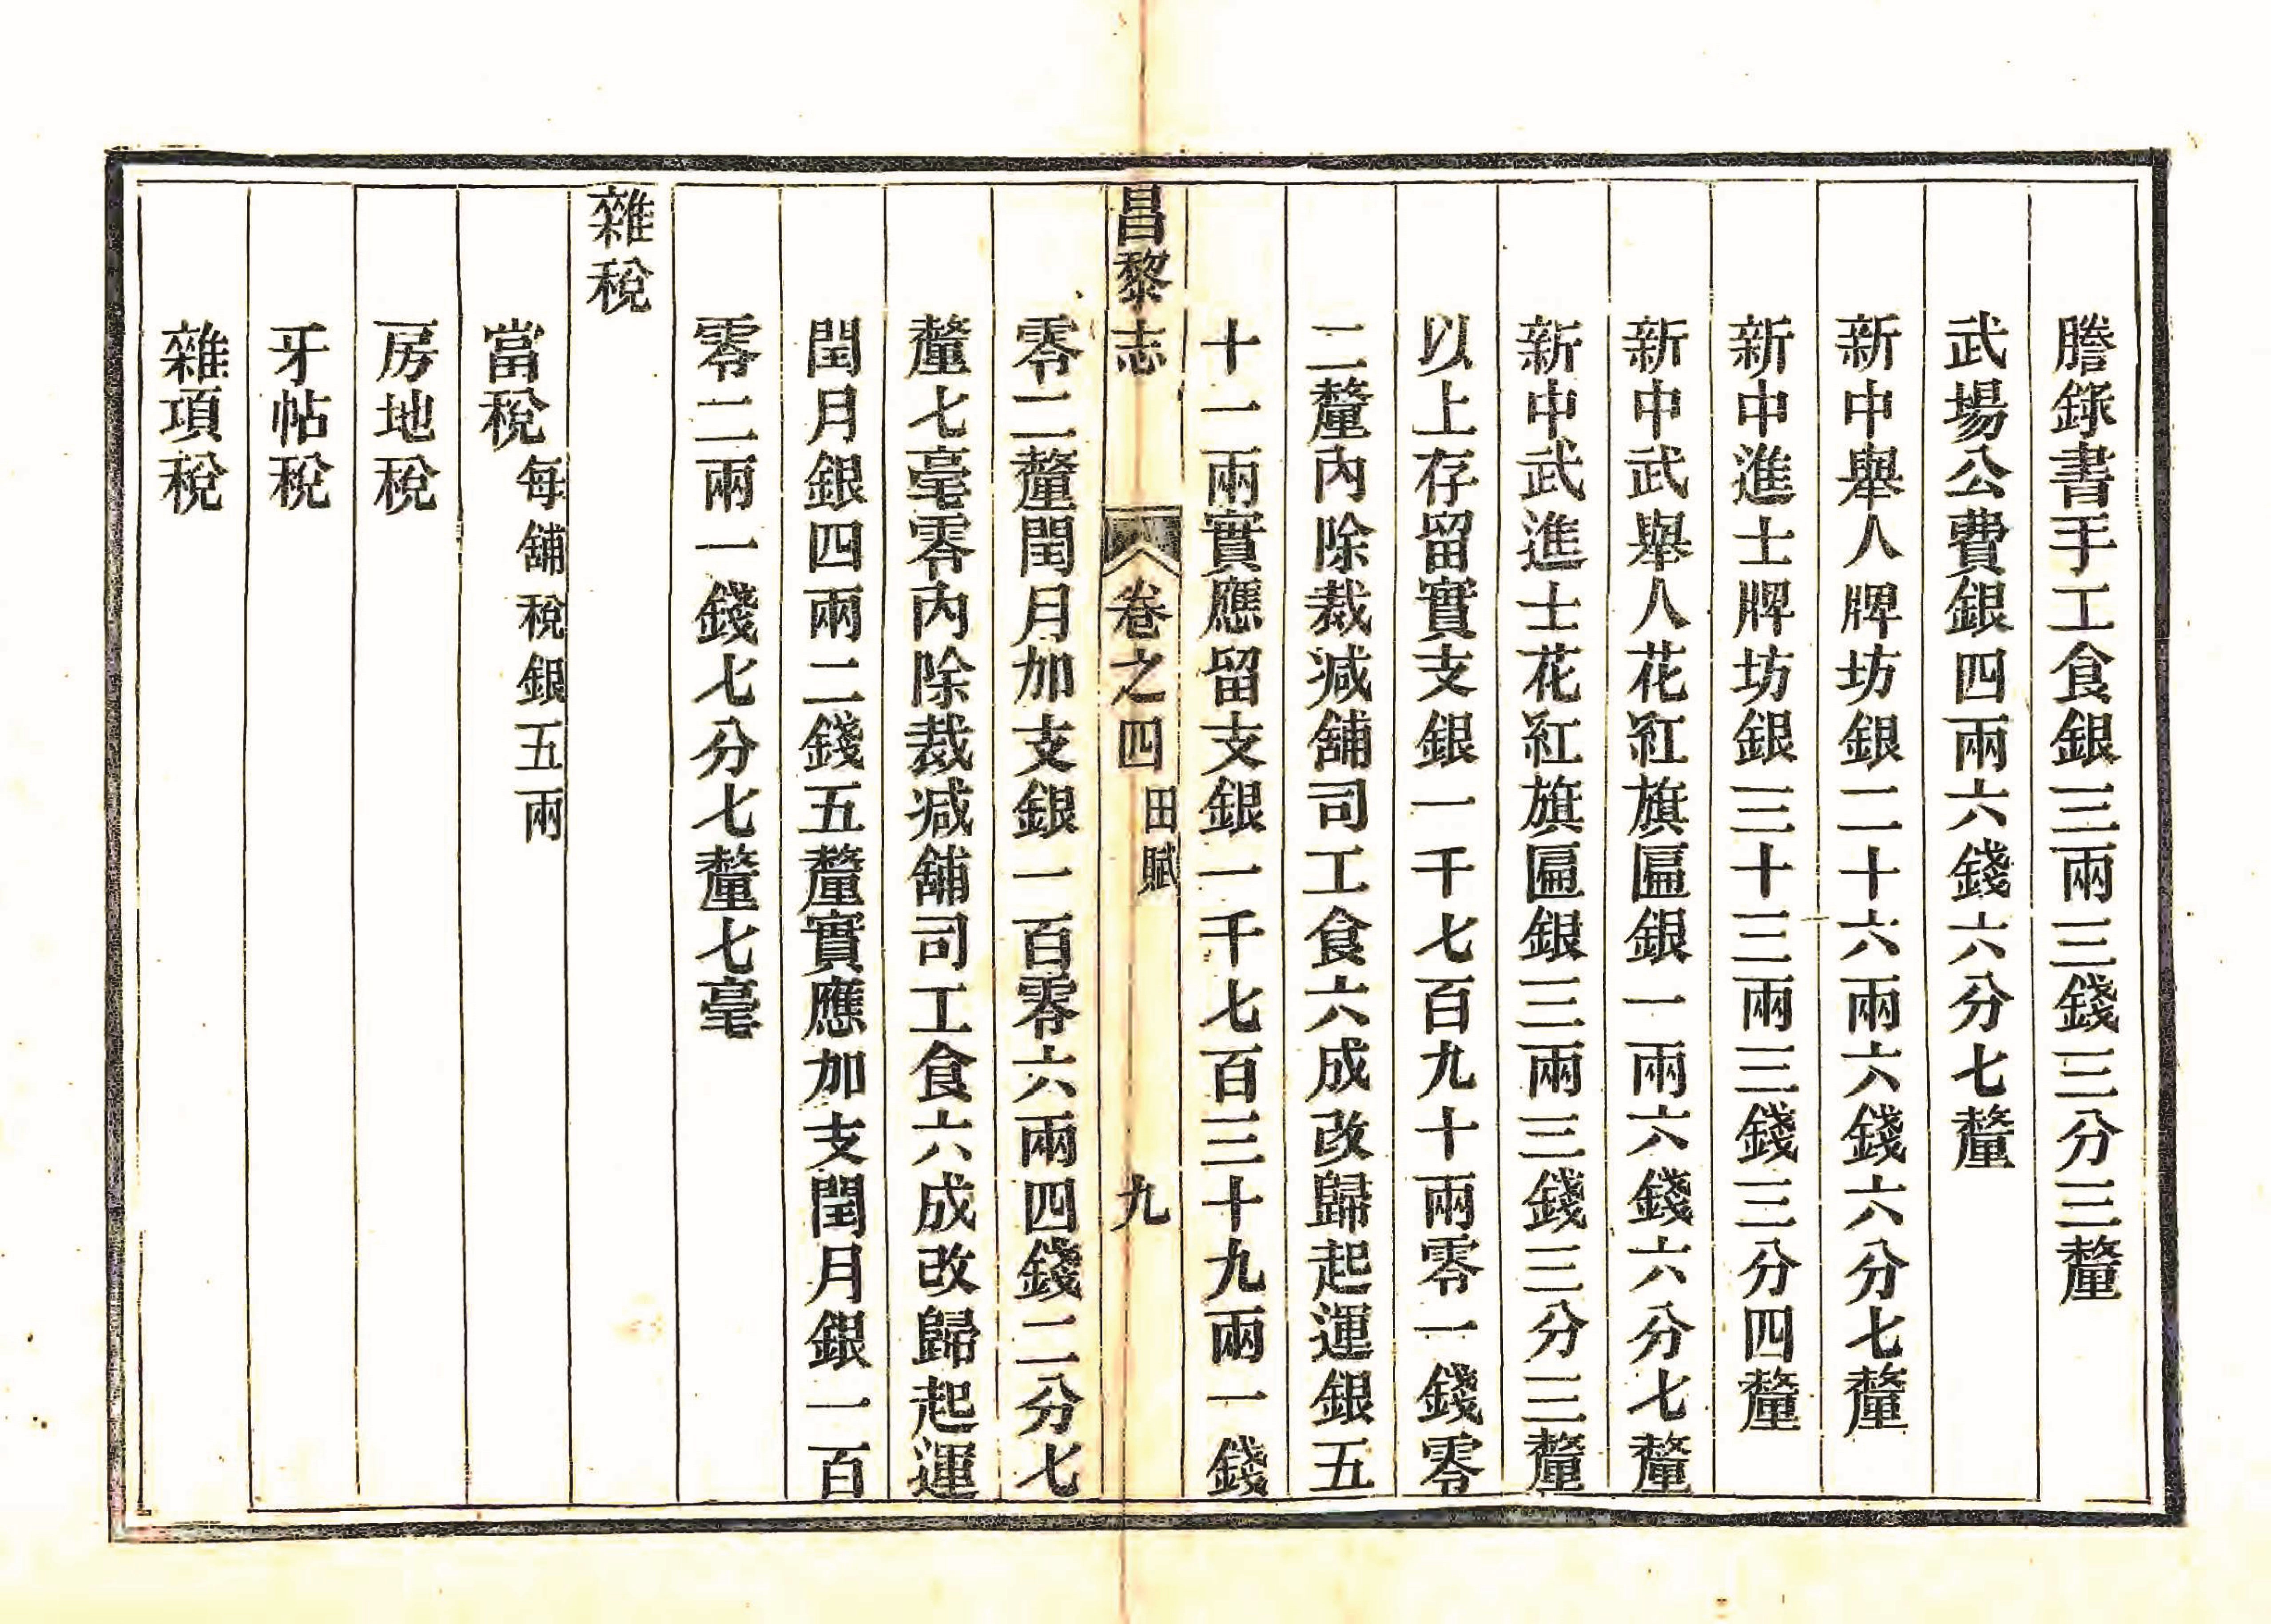 謄錄書手工食銀三兩三錢三分三釐
武場公費銀四兩六錢六分七釐
新中舉人牌坊銀二十六兩六錢六分七釐
新中進士牌坊銀三十三兩三錢三分四釐
新中武舉人花紅旗匾銀一兩六錢六分七釐
新中武進士花紅旗匾銀三兩三錢三分三釐
以上存留實支銀一千七百九十兩零一錢零
二釐內除裁減舖司工食六成改歸起運銀五
十一兩實應留支銀一千七百三十九兩一錢
昌黎志 卷之四 田賦 九
零二釐閏月加支銀一百零六兩四錢二分七
釐七毫零內除裁減舖司工食六成改歸起運
閏月銀四兩二錢五釐實應加支閏月銀一百
零二兩一錢七分七釐七毫
雜稅
當稅每舖稅銀五兩
房地稅
牙帖稅
雜項稅